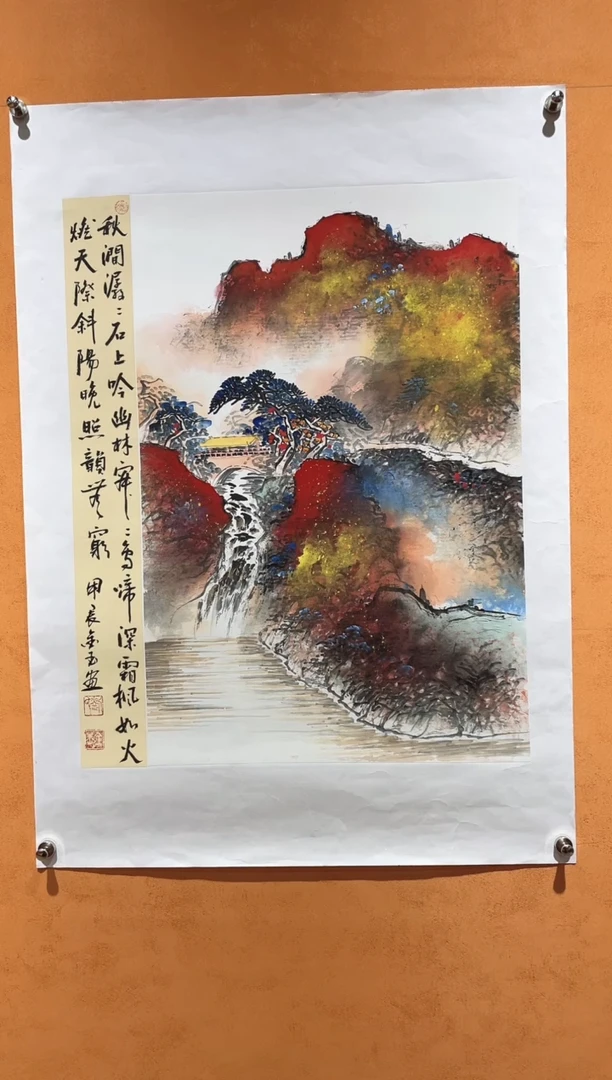 秋澗潺〻石上吟幽林寂〻鳥啼深霜楓如火
燃天際斜陽晚照韻無窮 甲辰金玉画